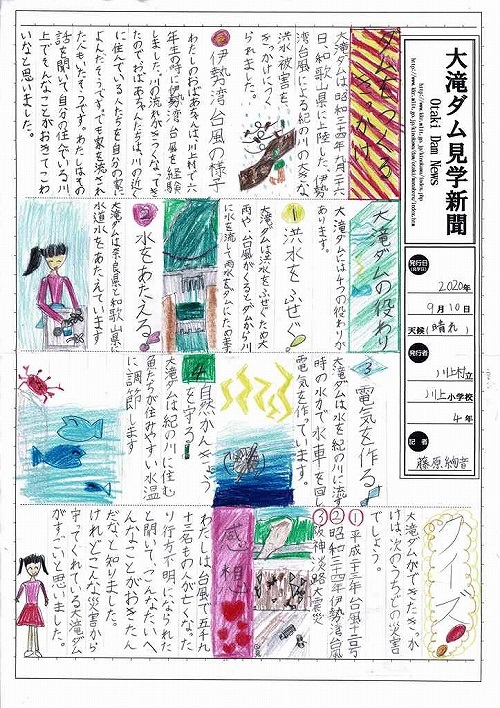 大滝ダム見学新聞
Otaki Dam News
発行日
(見学日)
2020年
9月10日
天候(晴れ)
発行者
川上村立
川上小学校
4年
記者
藤原絢音
ダムをつくる
きっかけ
大滝ダムは、昭和三十四年九月二十六
日、和歌山県に上陸した、伊勢
湾台風による紀の川の大きな
洪水被害を、
きっかけにつく
られました。
伊勢湾台風の様子
わたしのおばあちゃんは、川上村で六
年生の時に伊勢湾台風を経験
しました。川の流れがきつくなってき
たので、おばあちゃんたちは、川の近く
に住んでいる人たちを自分の家に
よんだそうです。でも家を流された
た人もいたそうです。わたしはその
話を聞いて自分の住んでいる川
上でそんなことがおきてこわ
いなと思いました。
大滝ダムの役わり
大滝ダムには4つの役わりが
あります。
1 洪水をふせぐ。
大滝ダムは洪水をふせぐため大
雨や、台風がくるとダムから川
に水を流して雨水をダムにためます。
2 水をあたえる。
大滝ダムは奈良県と和歌山県に
水道水をあたえています
3 電気を作る
大滝ダムは、水を紀の川に流す
時の水力で水車を回し
電気を作っています。
4 自然かんきょう
を守る!
大滝ダムは紀の川に住む
魚たちが住みやすい水温
に調節します
クイズ
大滝ダムができたきっか
けは、次のうちどの災害
でしょう。
①平成二十三年台風十二号
②昭和三十四年伊勢湾台風
③阪神淡路大震災
感想
わたしは台風で五千九
十三名もの人が亡くなった
り行方不明になられた
と聞いて、こんなたいへ
んなことがおきたん
だなと知りました。
けれどこんな災害から
守ってくれている大滝ダム
がすごいと思いました。